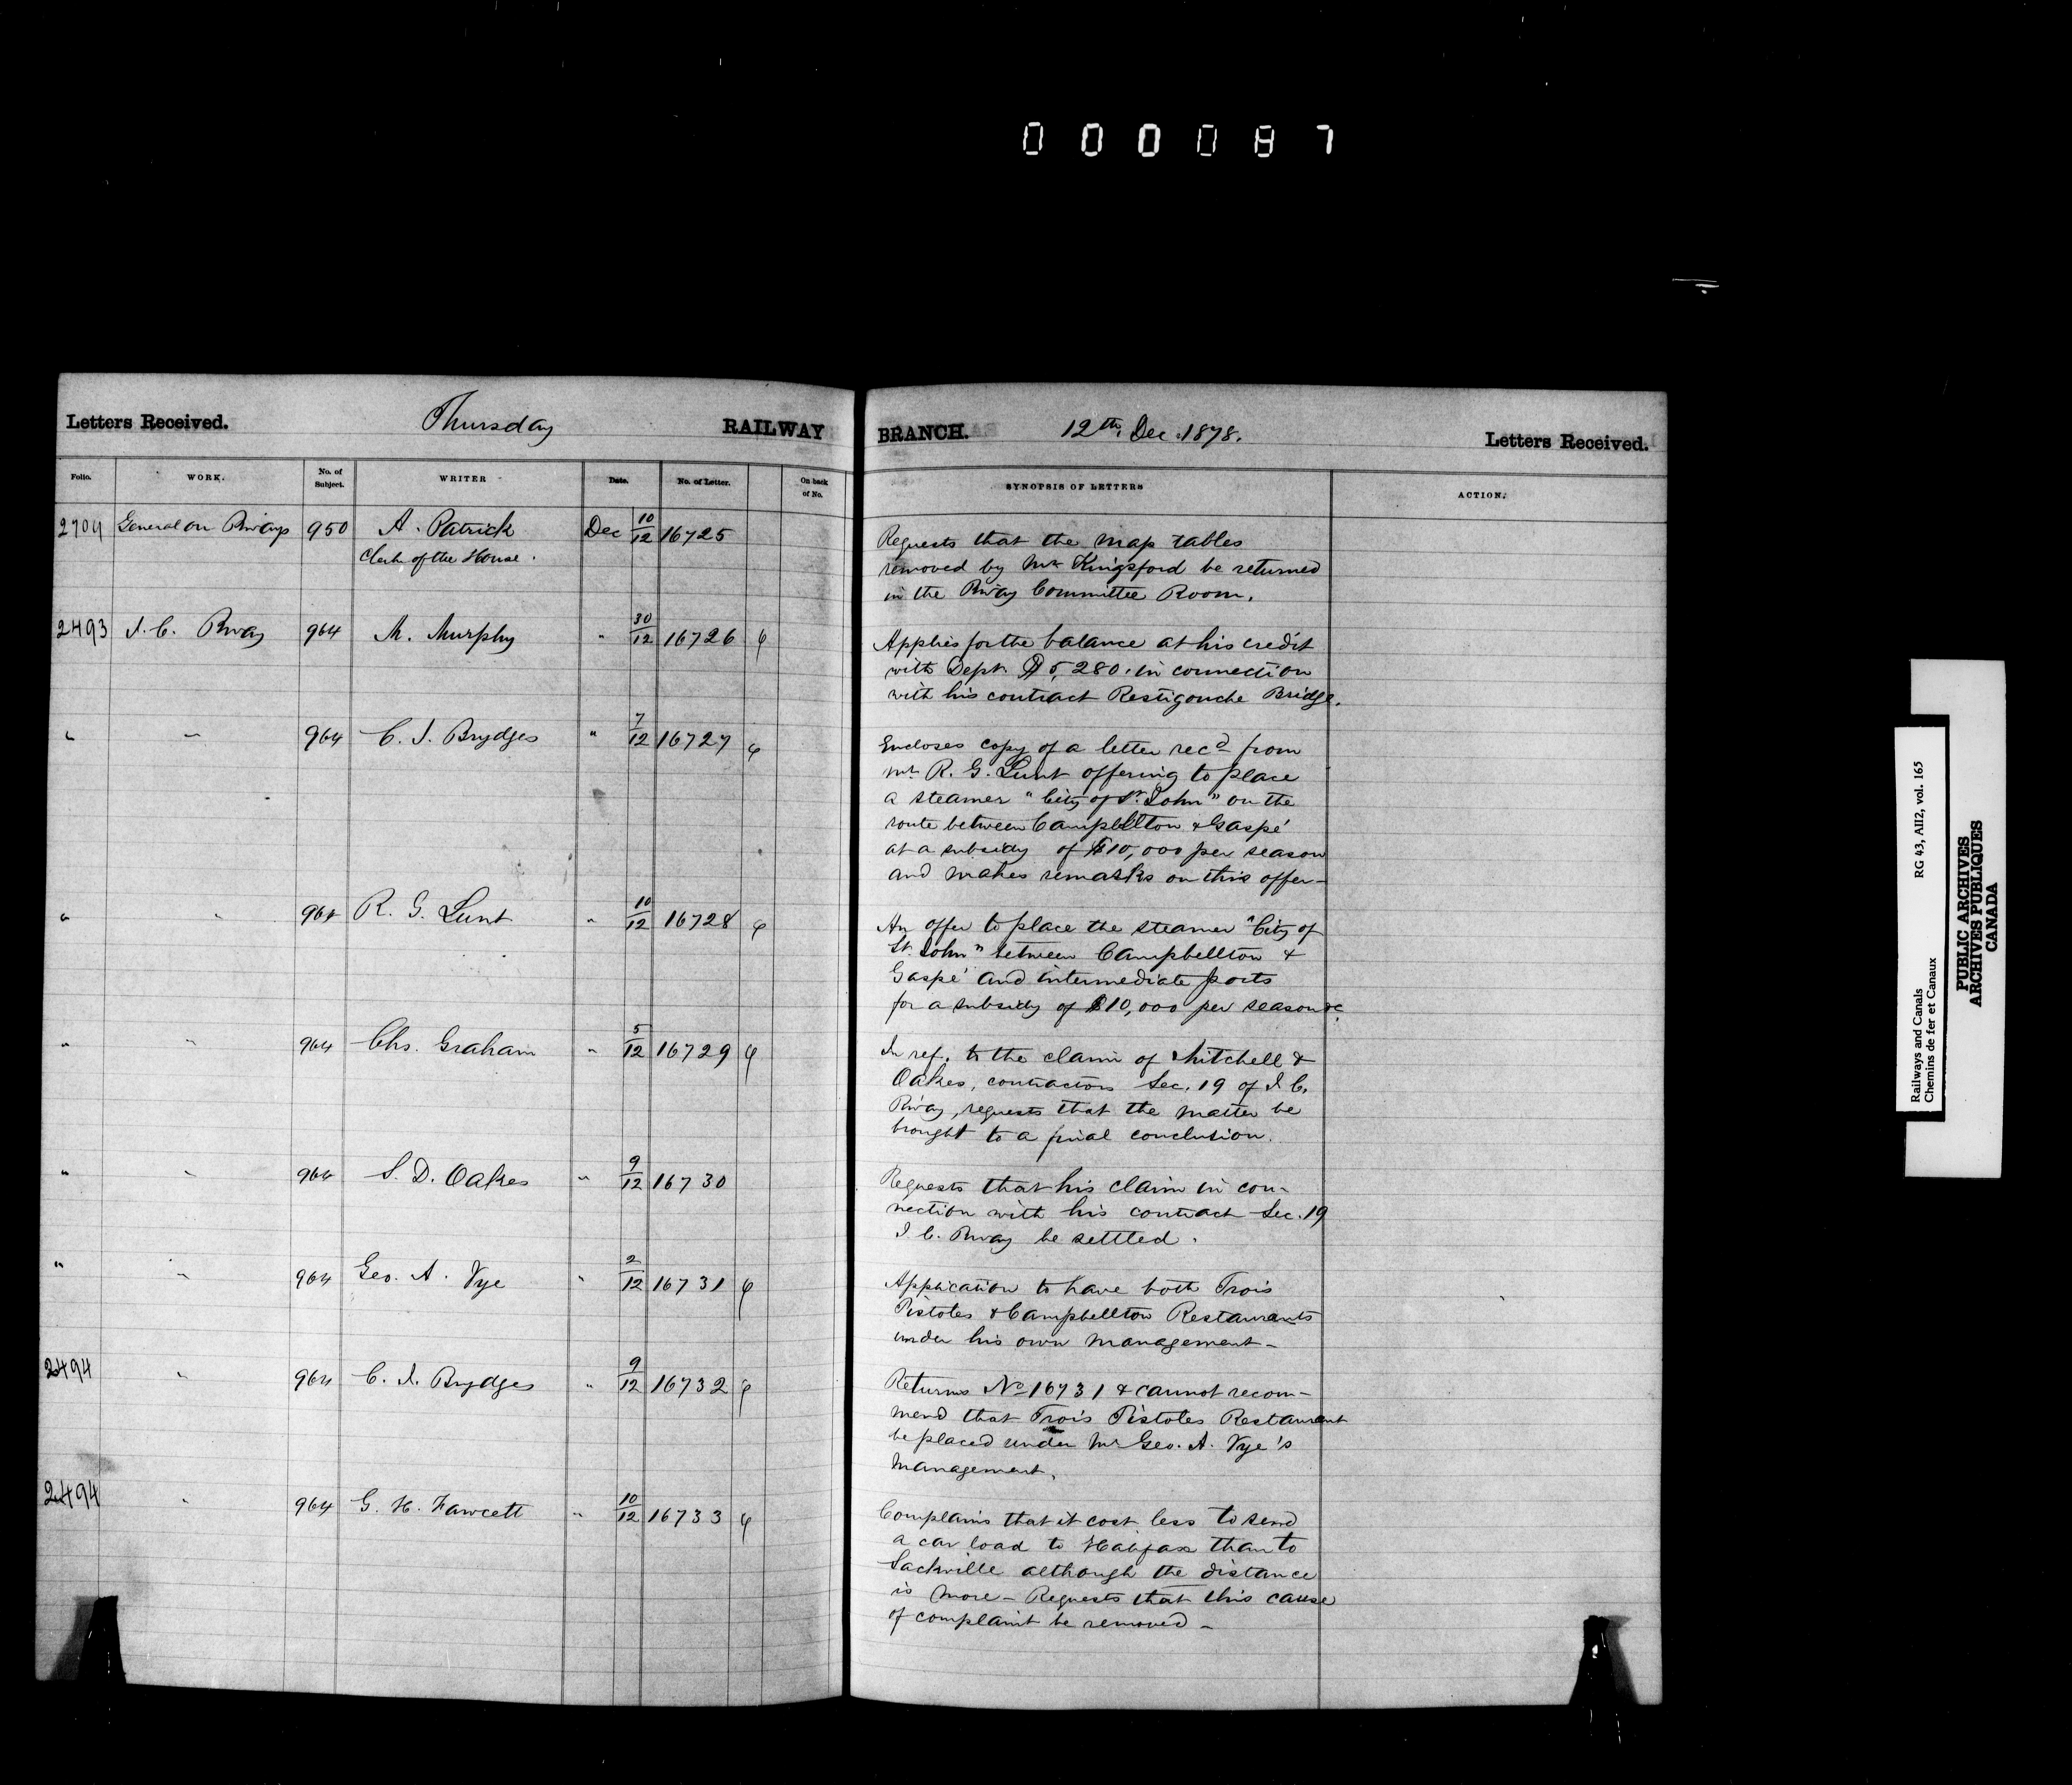 0 0 0 0 8 7
Letters Received. Thursday RAILWAY BRANCH. 12th Dec. 1878. Letters Received.
Folio. WORK. No. of Subject. WRITER Date. No. of Letter. On back of No. SYNOPSIS OF LETTERS ACTION.
2704 General on Rways 950 A. Patrick Dec 10/12 16725 Requests that the map tables
Clerk of the House. removed by Mr Kingsford be returned
in the Rway Committee Room.
2493 I. C. Rway 964 M. Murphy " 30/12 16726 Applies for the balance at his credit
with Dept. $5,280. in connection
with his contract Restigouche Bridge.
" " 964 C. J. Brydges " 7/12 16727 Encloses copy of a letter recd from
Mr R. G. Lunt offering to place
a steamer "City of St. John" on the
route between Campbellton & Gaspé
at a subsidy of $10,000 per season
and makes remarks on this offer -
" " 964 R. G. Lunt " 10/12 16728 An offer to place the steamer "City of
St. John" between Campbellton &
Gaspé and intermediate ports
for a subsidy of $10,000 per season &c
" " 964 Chs. Graham " 5/12 16729 In ref. to the claim of Mitchell &
Oakes, contractors Sec. 19 of I. C.
Rway, requests that the matter be
brought to a final conclusion.
" " 964 S. D. Oakes " 9/12 16730 Requests that his claim in con-
nection with his contract Sec. 19
I. C. Rway be settled.
" " 964 Geo. A. Vye " 2/12 16731 Application to have both Trois
Pistoles & Campbellton Restaurants
under his own management -
2494 " 964 C. J. Brydges " 9/12 16732 Returns No 16731 & cannot recom-
mend that Trois Pistoles Restaurant
be placed under Mr Geo. A. Vye's
management.
2494 " 964 G. H. Fawcett " 10/12 16733 Complains that it cost less to send
a car load to Halifax than to
Sackville although the distance
is more - Requests that this cause
of complaint be removed -
Railways and Canals RG 43, AII2, vol. 165
Chemins de fer et Canaux
PUBLIC ARCHIVES
ARCHIVES PUBLIQUES
CANADA